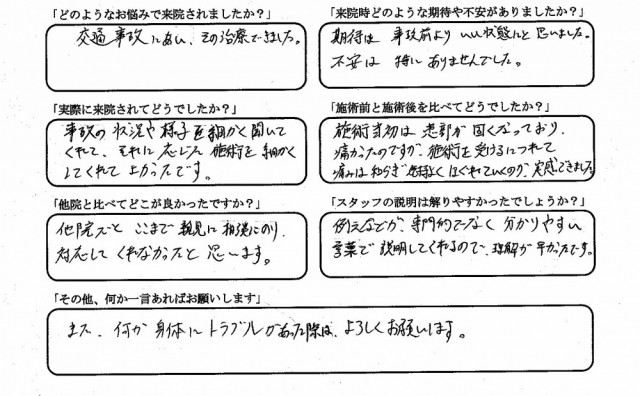 「どのようなお悩みで来院されましたか？」
交通事故にあい、その治療できました。
「来院時どのような期待や不安がありましたか？」
期待は 事故前より いい状態にと思いました。
不安は 特に ありませんでした。
「実際に来院されてどうでしたか？」
事故の状況や様子を細かく聞いて
くれて、それに応じた施術を細かく
してくれて よかったです。
「施術前と施術後を比べてどうでしたか？」
施術当初は 患部が固くなっており、
痛かったのですが、施術を受けるにつれて
痛みは和らぎ 気持よくほぐれていくのが、実感できました
「他院と比べてどこが良かったですか？」
他院だと ここまで 親身に相談にのり、
対応して くれなかったと 思います。
「スタッフの説明は解りやすかったでしょうか？」
例えなどが、専門的でなく 分かりやすい
言葉で 説明してくれるので、理解が早かったです。
「その他、何か一言あればお願いします」
また、何か 身体に トラブルがあった際は、よろしくお願いします。